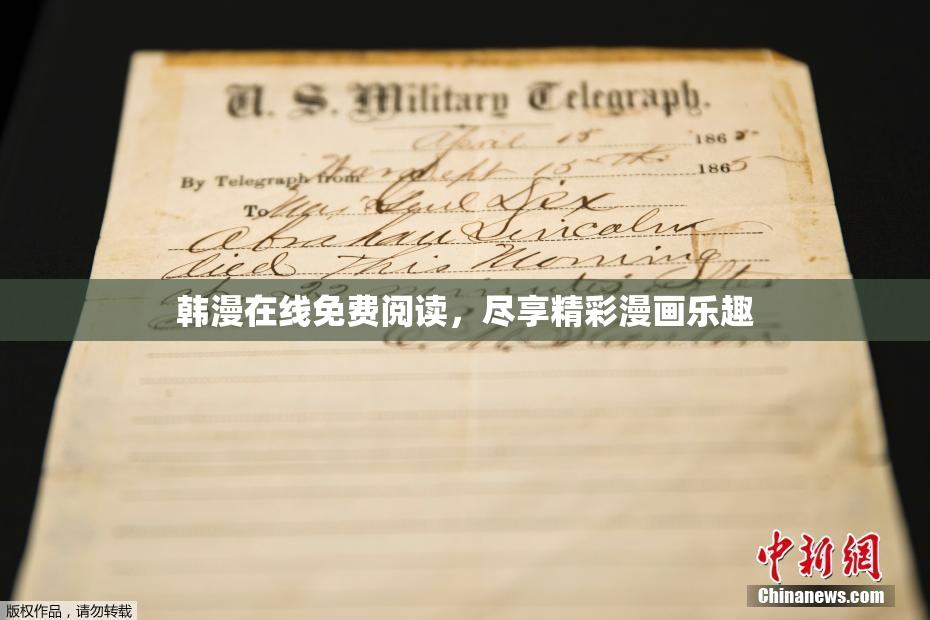 U. S. Military Telegraph.
April 15 1865
By Telegraph from War Dept 15th 1865
To Maj Genl Dix
Abraham Lincoln
died This Morning
22 minutes after
韩漫在线免费阅读，尽享精彩漫画乐趣
E. M. Stanton
中新网
Chinanews.com
版权作品，请勿转载